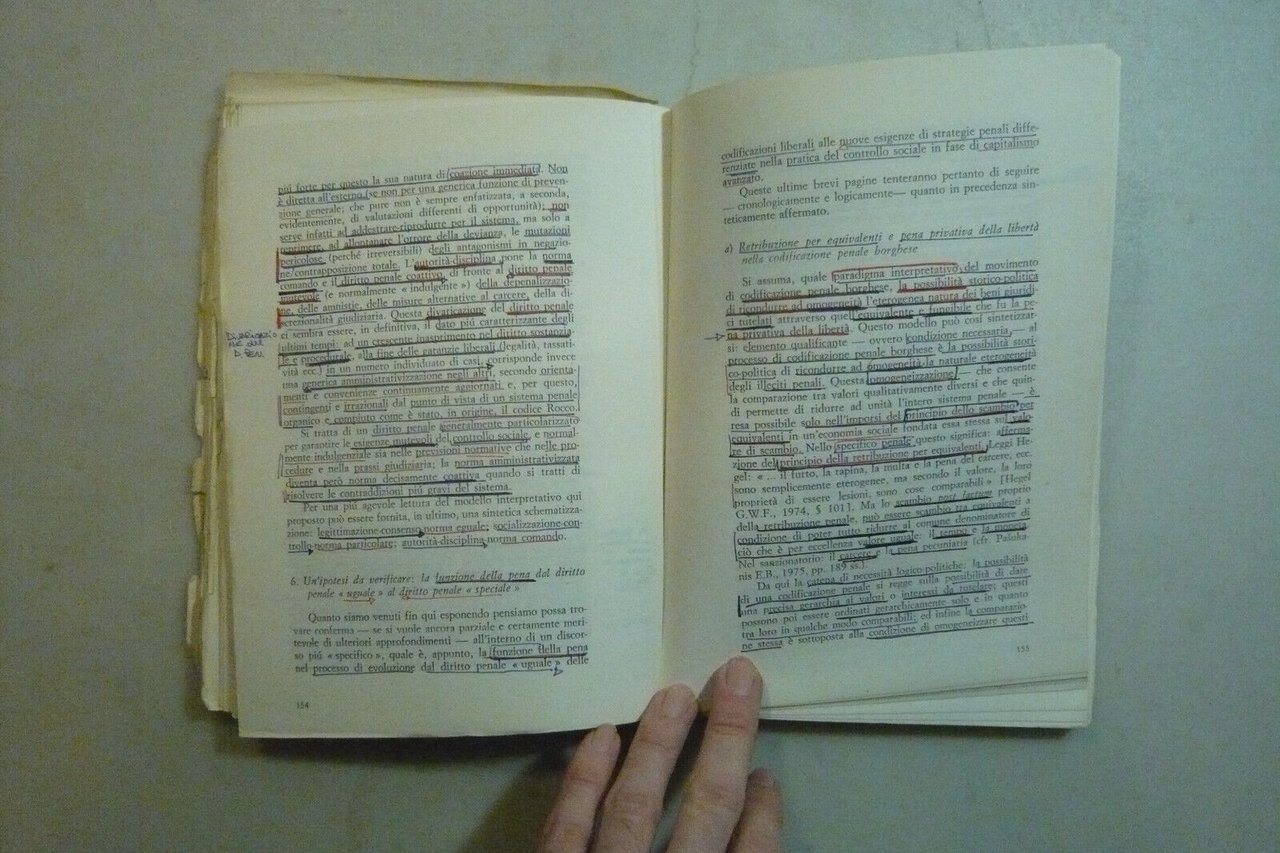 piú forte per questo la sua natura di coazione immediata. Non
è diretta all'esterno (se non per una generica funzione di preven-
zione generale; che pure non è sempre enfatizzata, a seconda,
evidentemente, di valutazioni differenti di opportunità); non
serve infatti ad addestrare-riprodurre per il sistema, ma solo a
reprimere, ad allontanare l'errore della devianza, le mutazioni
pericolose (perché irreversibili) degli antagonismi in negazio-
ne/contrapposizione totale. L'autorità-disciplina pone la norma
comando e il diritto penale coattivo, di fronte al diritto penale
mutevole (e normalmente « indulgente ») della depenalizzazio-
ne, delle amnistie, delle misure alternative al carcere, della di-
screzionalità giudiziaria. Questa divaricazione del diritto penale
ci sembra essere, in definitiva, il dato piú caratterizzante degli
ultimi tempi: ad un crescente inasprimento nel diritto sostanzia-
le e procedurale, alla fine delle garanzie liberali (legalità, tassati-
vità ecc.) in un numero individuato di casi, corrisponde invece
una generica amministrativizzazione negli altri, secondo orienta-
menti e convenienze continuamente aggiornati e, per questo,
contingenti e irrazionali dal punto di vista di un sistema penale
organico e compiuto come è stato, in origine, il codice Rocco.
Si tratta di un diritto penale generalmente particolarizzato
per garantire le esigenze mutevoli del controllo sociale, e normal-
mente indulgenziale sia nelle previsioni normative che nelle pro-
cedure e nella prassi giudiziaria; la norma amministrativizzata
diventa però norma decisamente coattiva quando si tratti di
risolvere le contraddizioni piú gravi del sistema.
Per una piú agevole lettura del modello interpretativo qui
proposto può essere fornita, in ultimo, una sintetica schematizza-
zione: legittimazione-consenso norma eguale; socializzazione-con-
trollo norma particolare; autorità-disciplina norma comando.
6. Un'ipotesi da verificare: la funzione della pena dal diritto
penale « uguale » al diritto penale « speciale »
Quanto siamo venuti fin qui esponendo pensiamo possa tro-
vare conferma — se si vuole ancora parziale e certamente meri-
tevole di ulteriori approfondimenti — all'interno di un discor-
so piú « specifico », quale è, appunto, la funzione della pena
nel processo di evoluzione dal diritto penale « uguale » delle
154
DIVARICAZIO
NE DEL
D. PEN.
codificazioni liberali alle nuove esigenze di strategie penali diffe-
renziate nella pratica del controllo sociale in fase di capitalismo
avanzato.
Queste ultime brevi pagine tenteranno pertanto di seguire
— cronologicamente e logicamente— quanto in precedenza sin-
teticamente affermato.
a) Retribuzione per equivalenti e pena privativa della libertà
nella codificazione penale borghese
Si assuma, quale paradigma interpretativo, del movimento
di codificazione penale borghese, la possibilità storico-politica
di ricondurre ad omogeneità l'eterogenea natura dei beni giuridi-
ci tutelati attraverso quell'equivalente e fungibile che fu la pe-
na privativa della libertà. Questo modello può cosí sintetizzar-
si: elemento qualificante — ovvero condizione necessaria, — al
processo di codificazione penale borghese è la possibilità stori-
co-politica di ricondurre ad omogeneità la naturale eterogeneità
degli illeciti penali. Questa omogeneizzazione — che consente
la comparazione tra valori qualitativamente diversi e che quin-
di permette di ridurre ad unità l'intero sistema penale — è
resa possibile solo nell'imporsi del principio dello scambio per
equivalenti in un'economia sociale fondata essa stessa sul valo-
re di scambio. Nello specifico penale questo significa: afferma-
zione del principio della retribuzione per equivalenti. Leggi He-
gel: « ... il furto, la rapina, la multa e la pena del carcere, ecc.
sono semplicemente eterogenee, ma secondo il valore, la loro
proprietà di essere lesioni, sono cose comparabili » [Hegel
G.W.F., 1974, § 101]. Ma lo scambio post factum proprio
della retribuzione penale, può essere scambio tra equivalenti a
condizione di poter tutto ridurre al comune denominatore di
ciò che è per eccellenza valore uguale: il tempo e la moneta.
Nel sanzionatorio: il carcere e la pena pecuniaria (cfr. Pašuka-
nis E.B., 1975, pp. 189 ss.).
Da qui la catena di necessità logico-politiche: la possibilità
di una codificazione penale si regge sulla possibilità di dare
una precisa gerarchia ai valori o interessi da tutelare; questi
possono poi essere ordinati gerarchicamente solo e in quanto
tra loro in qualche modo comparabili; ed infine la comparazio-
ne stessa è sottoposta alla condizione di omogeneizzare questi
155